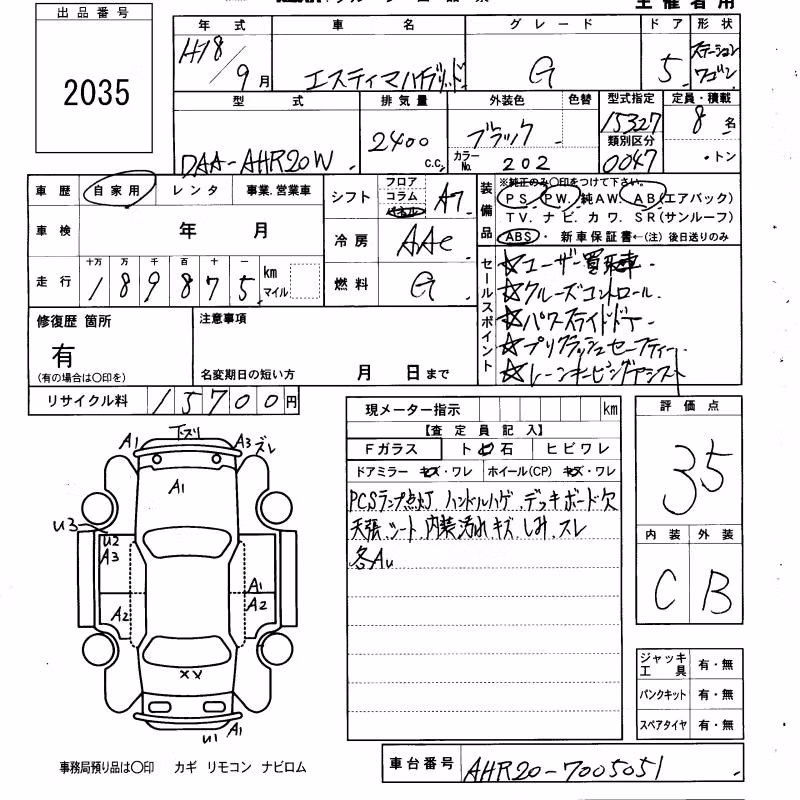 出品番号
2035
年 式 車 名 グ レ ー ド ド ア 形 状
H18/9月 エスティマハイブリッド G 5 ステーションワゴン
型 式 排 気 量 外装色 色替 型式指定 定員・積載
DAA-AHR20W 2400c.c. ブラック 15327 8名
類別区分
カラーNo. 202 0047 ・トン
車 歴 自家用 レンタ 事業.営業車
シフト フロア コラム パネル A7
装備品 ※純正のみ〇印をつけて下さい。
PS. PW. 純AW. AB(エアバック)
TV. ナビ. カワ. SR(サンルーフ)
ABS・ 新車保証書←(注)後日送りのみ
車 検 年 月
冷 房 AAC
走 行 十万 万 千 百 十 一 km マイル
189875
燃 料 G
セールスポイント
☆ユーザー買取車.
☆クルーズコントロール.
☆パワースライドドアー
☆プリクラッシュセーフティー
☆レーンキーピングアシスト
修復歴 箇所
有
(有の場合は〇印を)
注意事項
名変期日の短い方 月 日まで
リサイクル料 15700円
現メーター指示 km
【査 定 員 記 入】
Fガラス ト ビ 石 ヒビワレ
ドアミラー キズ・ワレ ホイール(CP) キズ・ワレ
PCSランプ点灯 ハンドルハゲ デッキボード欠
天張.シート.内装汚れ キズ しみ.スレ
各AU
評 価 点
35
内 装 外 装
C B
A1 下スリ A3 ズレ
A1
U3
U2
A3
A1
A2 A2
XX
U1 A1
ジャッキ工具 有・無
パンクキット 有・無
スペアタイヤ 有・無
事務局預り品は〇印 カギ リモコン ナビロム
車台番号 AHR20-7005051